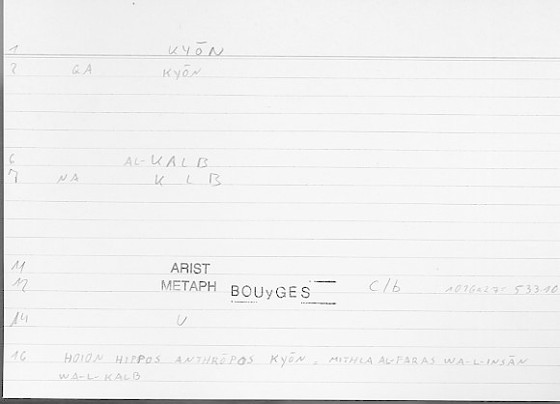 1 KYŌN
2 GA KYŌN
6 AL-KALB
7 NA K L B
11 ARIST
12 METAPH BOUyGES C/b 1016a27 533.10
14 U
16 HOION HIPPOS ANTHRŌPOS KYŌN . MITHLA AL-FARAS WA-L-INSĀN
WA-L-KALB